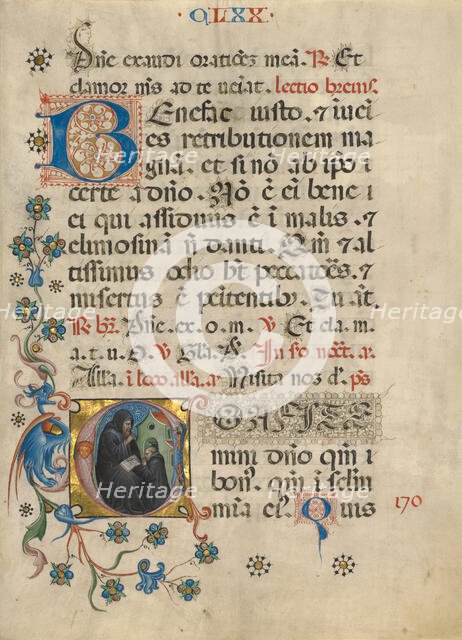 · QLXX ·
Dñe exaudi oratiõẽs meã. R. Et
clamor ad te ueniat. lectio breuis.
Benefac iusto. ⁊ iueĩ
es retributionem ma
gnã. et si nõ ab ipõ i
certe a dño. Nõ ẽ ei bene i
ei qui assiduus ẽ i malis. ⁊
elimosinã ñ danti. Qm̃ ⁊ al
tissimus odio ht̃ peccatores. ⁊
misertus ẽ penitentibꝫ. Tu at̃
R. br̃. Dñe. ex. o. m. V Et cla. m.
a. t. u. V Gl̃a. In
Alla. i loco alla. a ps
mini dño qm̃ i
bonꝰ. qm̃ i
mia ei. Quis
170
Heritage
Heritage
Heritage
Heritage
Heritage
Heritage
Heritage